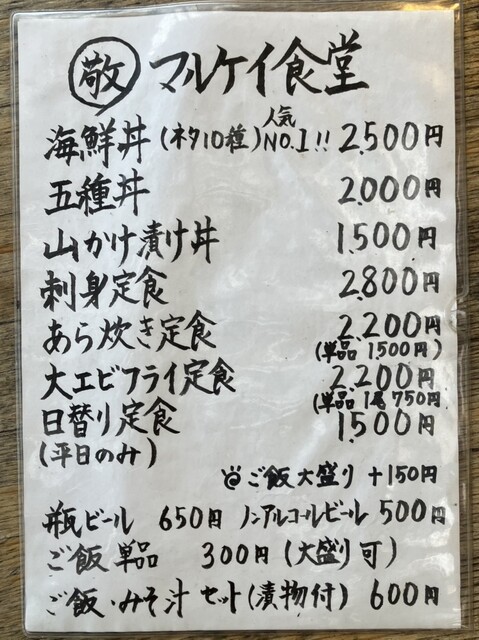 敬 マルケイ食堂
人気
海鮮丼 (ネタ10種) NO.1!! 2,500円
五種丼 2,000円
山かけ漬け丼 1,500円
刺身定食 2,800円
あら炊き定食 2,200円
(単品 1500円)
大エビフライ定食 2,200円
(単品 1尾 750円)
日替り定食 1,500円
(平日のみ)
ご飯大盛り +150円
瓶ビール 650円 ノンアルコールビール 500円
ご飯 単品 300円 (大盛り可)
ご飯・みそ汁 セット(漬物付) 600円